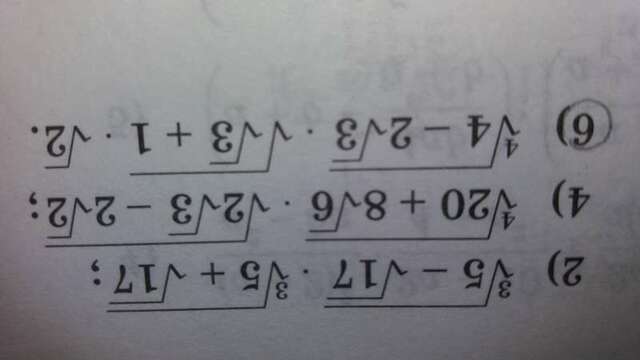 2) ∛(5 − √17) · ∛(5 + √17);
4) ∜(20 + 8√6) · √(2√3 − 2√2);
6) ∜(4 − 2√3) · √(√3 + 1) · √2.